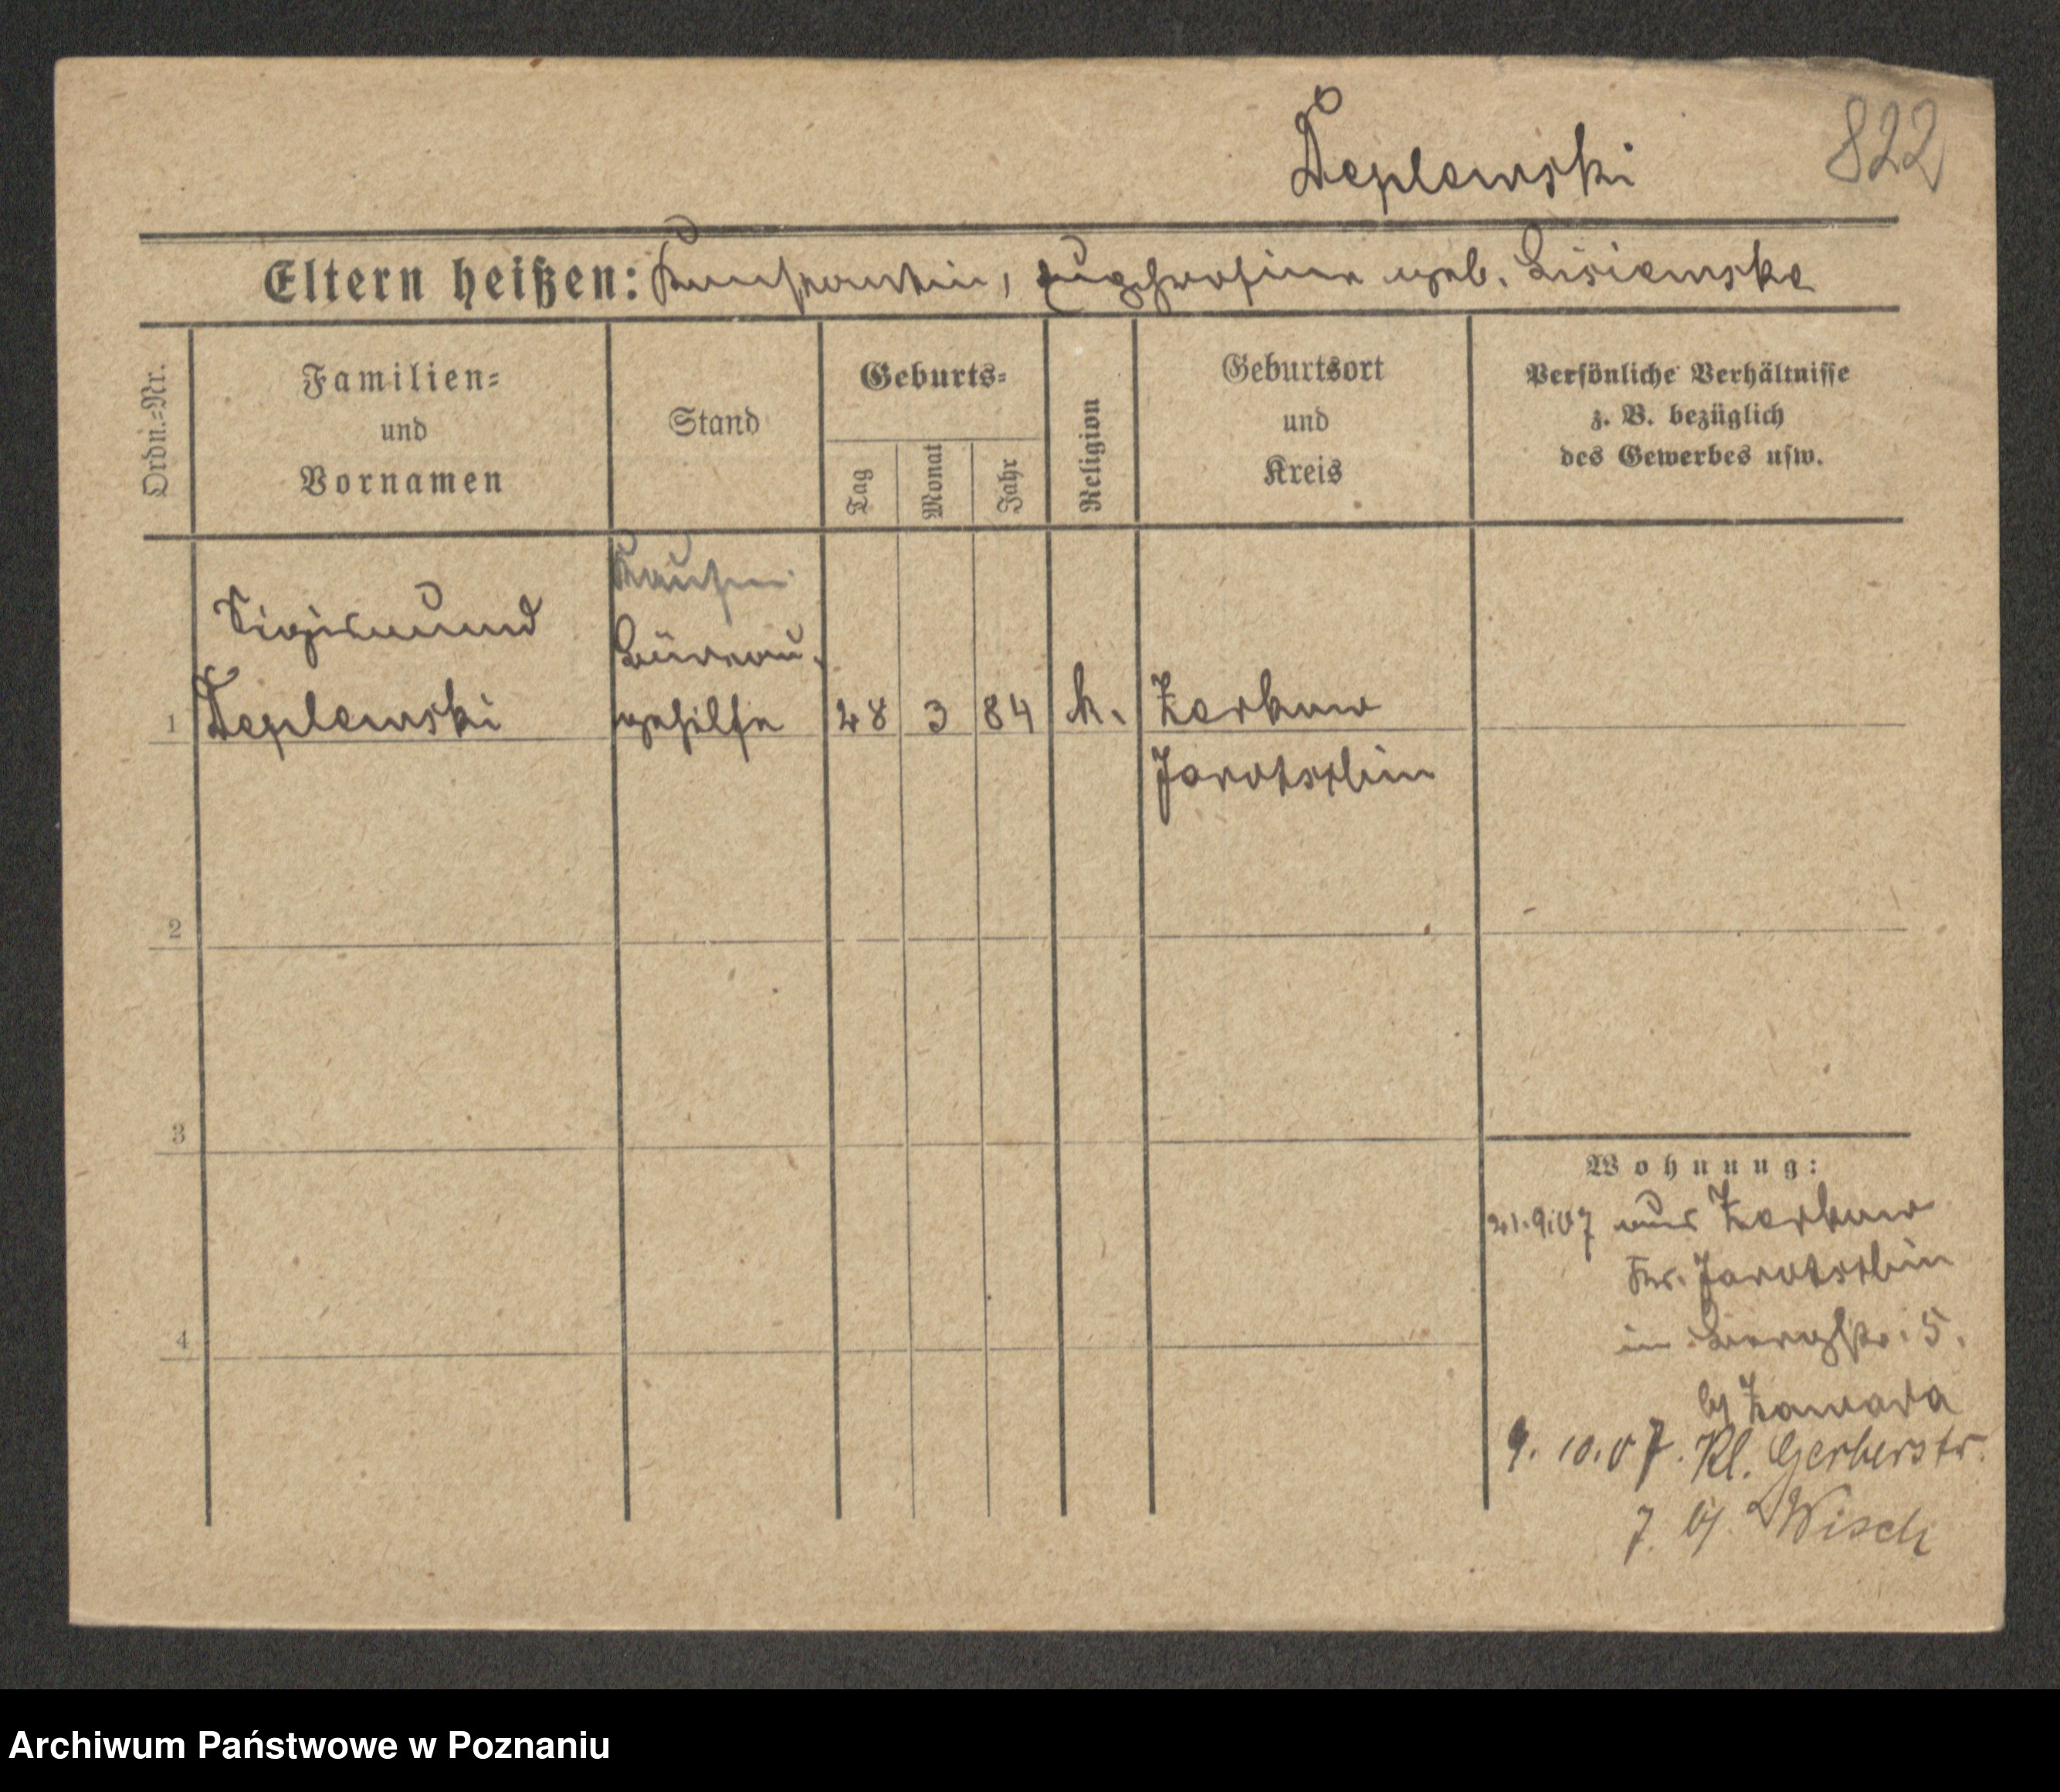 Teplewski
822
Eltern heißen: Konstantin, Eugphrosine geb. Lisiewska
Ordn.=Nr.
Familien=
und
Vornamen
Stand
Geburts=
Tag
Monat
Jahr
Religion
Geburtsort
und
Kreis
Persönliche Verhältnisse
z. B. bezüglich
des Gewerbes usw.
Kaufm
Sigismund
Büreau-
1 Teplewski gehilfe 28 3 84 k. Zerkow
Jarotschin
2
3
Wohnung:
21.9.07 aus Zerkow
Kr. Jarotschin
4
in Bergstr. 5.
bei Zawada
9. 10. 07. Kl. Gerberstr.
7. bei Wisch
Archiwum Państwowe w Poznaniu